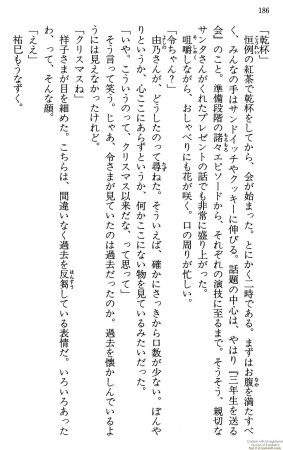 186
「乾杯」
　恒例の紅茶で乾杯をしてから、会が始まった。とにかく二時である。まずはお腹を満たすべ
く、みんなの手はサンドイッチやクッキーに伸びる。話題の中心は、やはり『三年生を送る
会』のこと。準備段階の諸々エピソードから、それぞれの演技に至るまで。そうそう、親切な
サンタさんがくれたプレゼントの話でも非常に盛り上がった。
　咀嚼しながら、おしゃべりにも花が咲く。口の周りが忙しい。
「令ちゃん？」
　由乃さんが、どうしたのって尋ねた。そういえば、確かにさっきから口数が少ない。ぼんや
りというか、心ここにあらずというか、何かここにない物を見ているみたいだった。
「いや。こういうのって、クリスマス以来だな、って思って」
　そう言って笑う。じゃあ、令さまが見ていたのは過去だったのか。過去を懐かしんでいるよ
うには見えなかったけれど。
「クリスマスね」
　祥子さまが目を細めた。こちらは、間違いなく過去を反芻している表情だ。いろいろあった
わ、って、そんな顔。
「ええ」
　祐巳もうなずく。